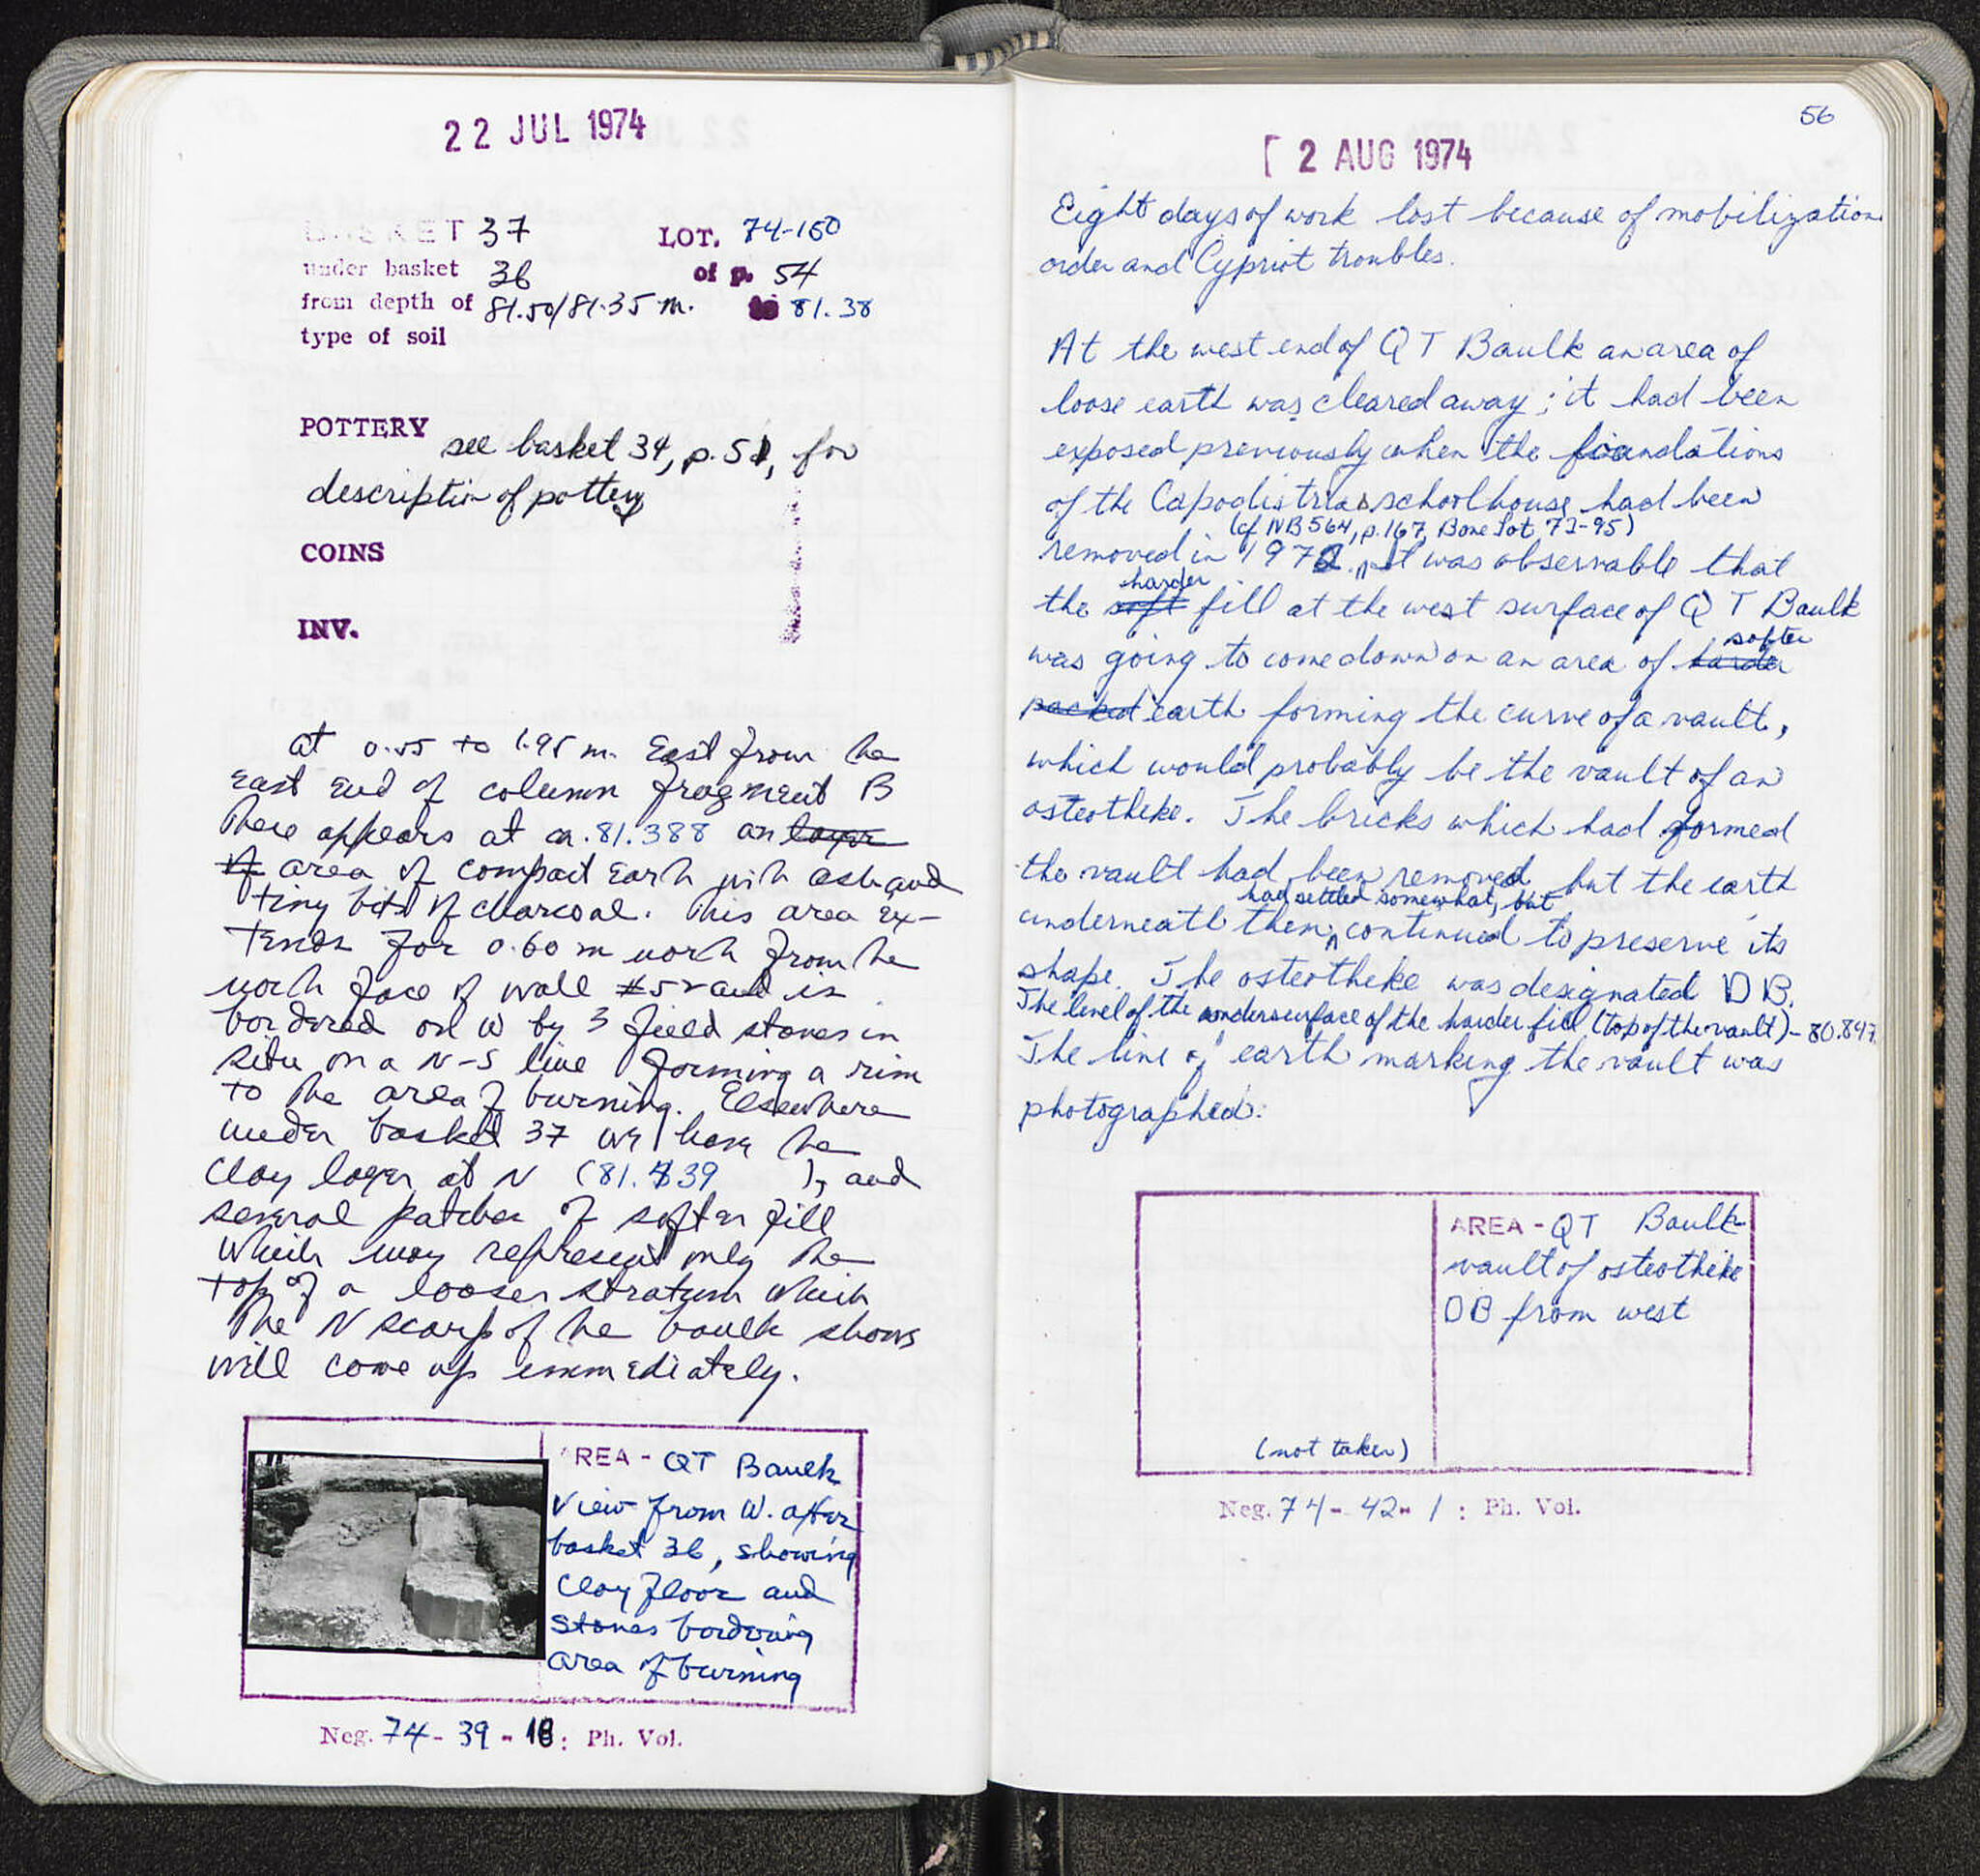 22 JUL 1974
BASKET 37 LOT. 74-160
under basket 36 of p. 54
from depth of 81.50/81.35 m. 81.38
type of soil
POTTERY see basket 34, p. 51, for
description of pottery
COINS
INV.
at 0.55 to 1.95 m. East from the
east end of column fragment B
there appears at ca. 81.388 an layer
of area of compact earth with ash and
tiny bits of charcoal. This area ex-
tends for 0.60 m north from the
north face of wall #52 and is
bordered on W by 3 field stones in
situ on a N-S line forming a rim
to the area of burning. Elsewhere
under basket 37 we have the
clay layer at N (81.39 ), and
several patches of softer fill
which may represent only the
top of a looser stratum which
the N scarp of the baulk shows
will come up immediately.
AREA - QT Baulk
View from W. after
basket 36, showing
clay floor and
stones bordering
area of burning
Neg. 74-39-18: Ph. Vol.
56
2 AUG 1974
Eight days of work lost because of mobilization
order and Cypriot troubles.
At the west end of QT Baulk an area of
loose earth was cleared away; it had been
exposed previously when the foundations
of the Capodistrias schoolhouse had been
(cf NB 564, p. 167, Bone Lot 72-95)
removed in 1972. It was observable that
harder
the soft fill at the west surface of QT Baulk
softer
was going to come down on an area of harder
packed earth forming the curve of a vault,
which would probably be the vault of an
osteotheke. The bricks which had formed
the vault had been removed, but the earth
had settled somewhat, but
underneath them, continued to preserve its
shape. The osteotheke was designated DB.
The level of the undersurface of the harder fill (top of the vault) - 80.847
The line of earth marking the vault was
photographed:
AREA - QT Baulk
vault of osteotheke
DB from west
(not taken)
Neg. 74-42-1: Ph. Vol.